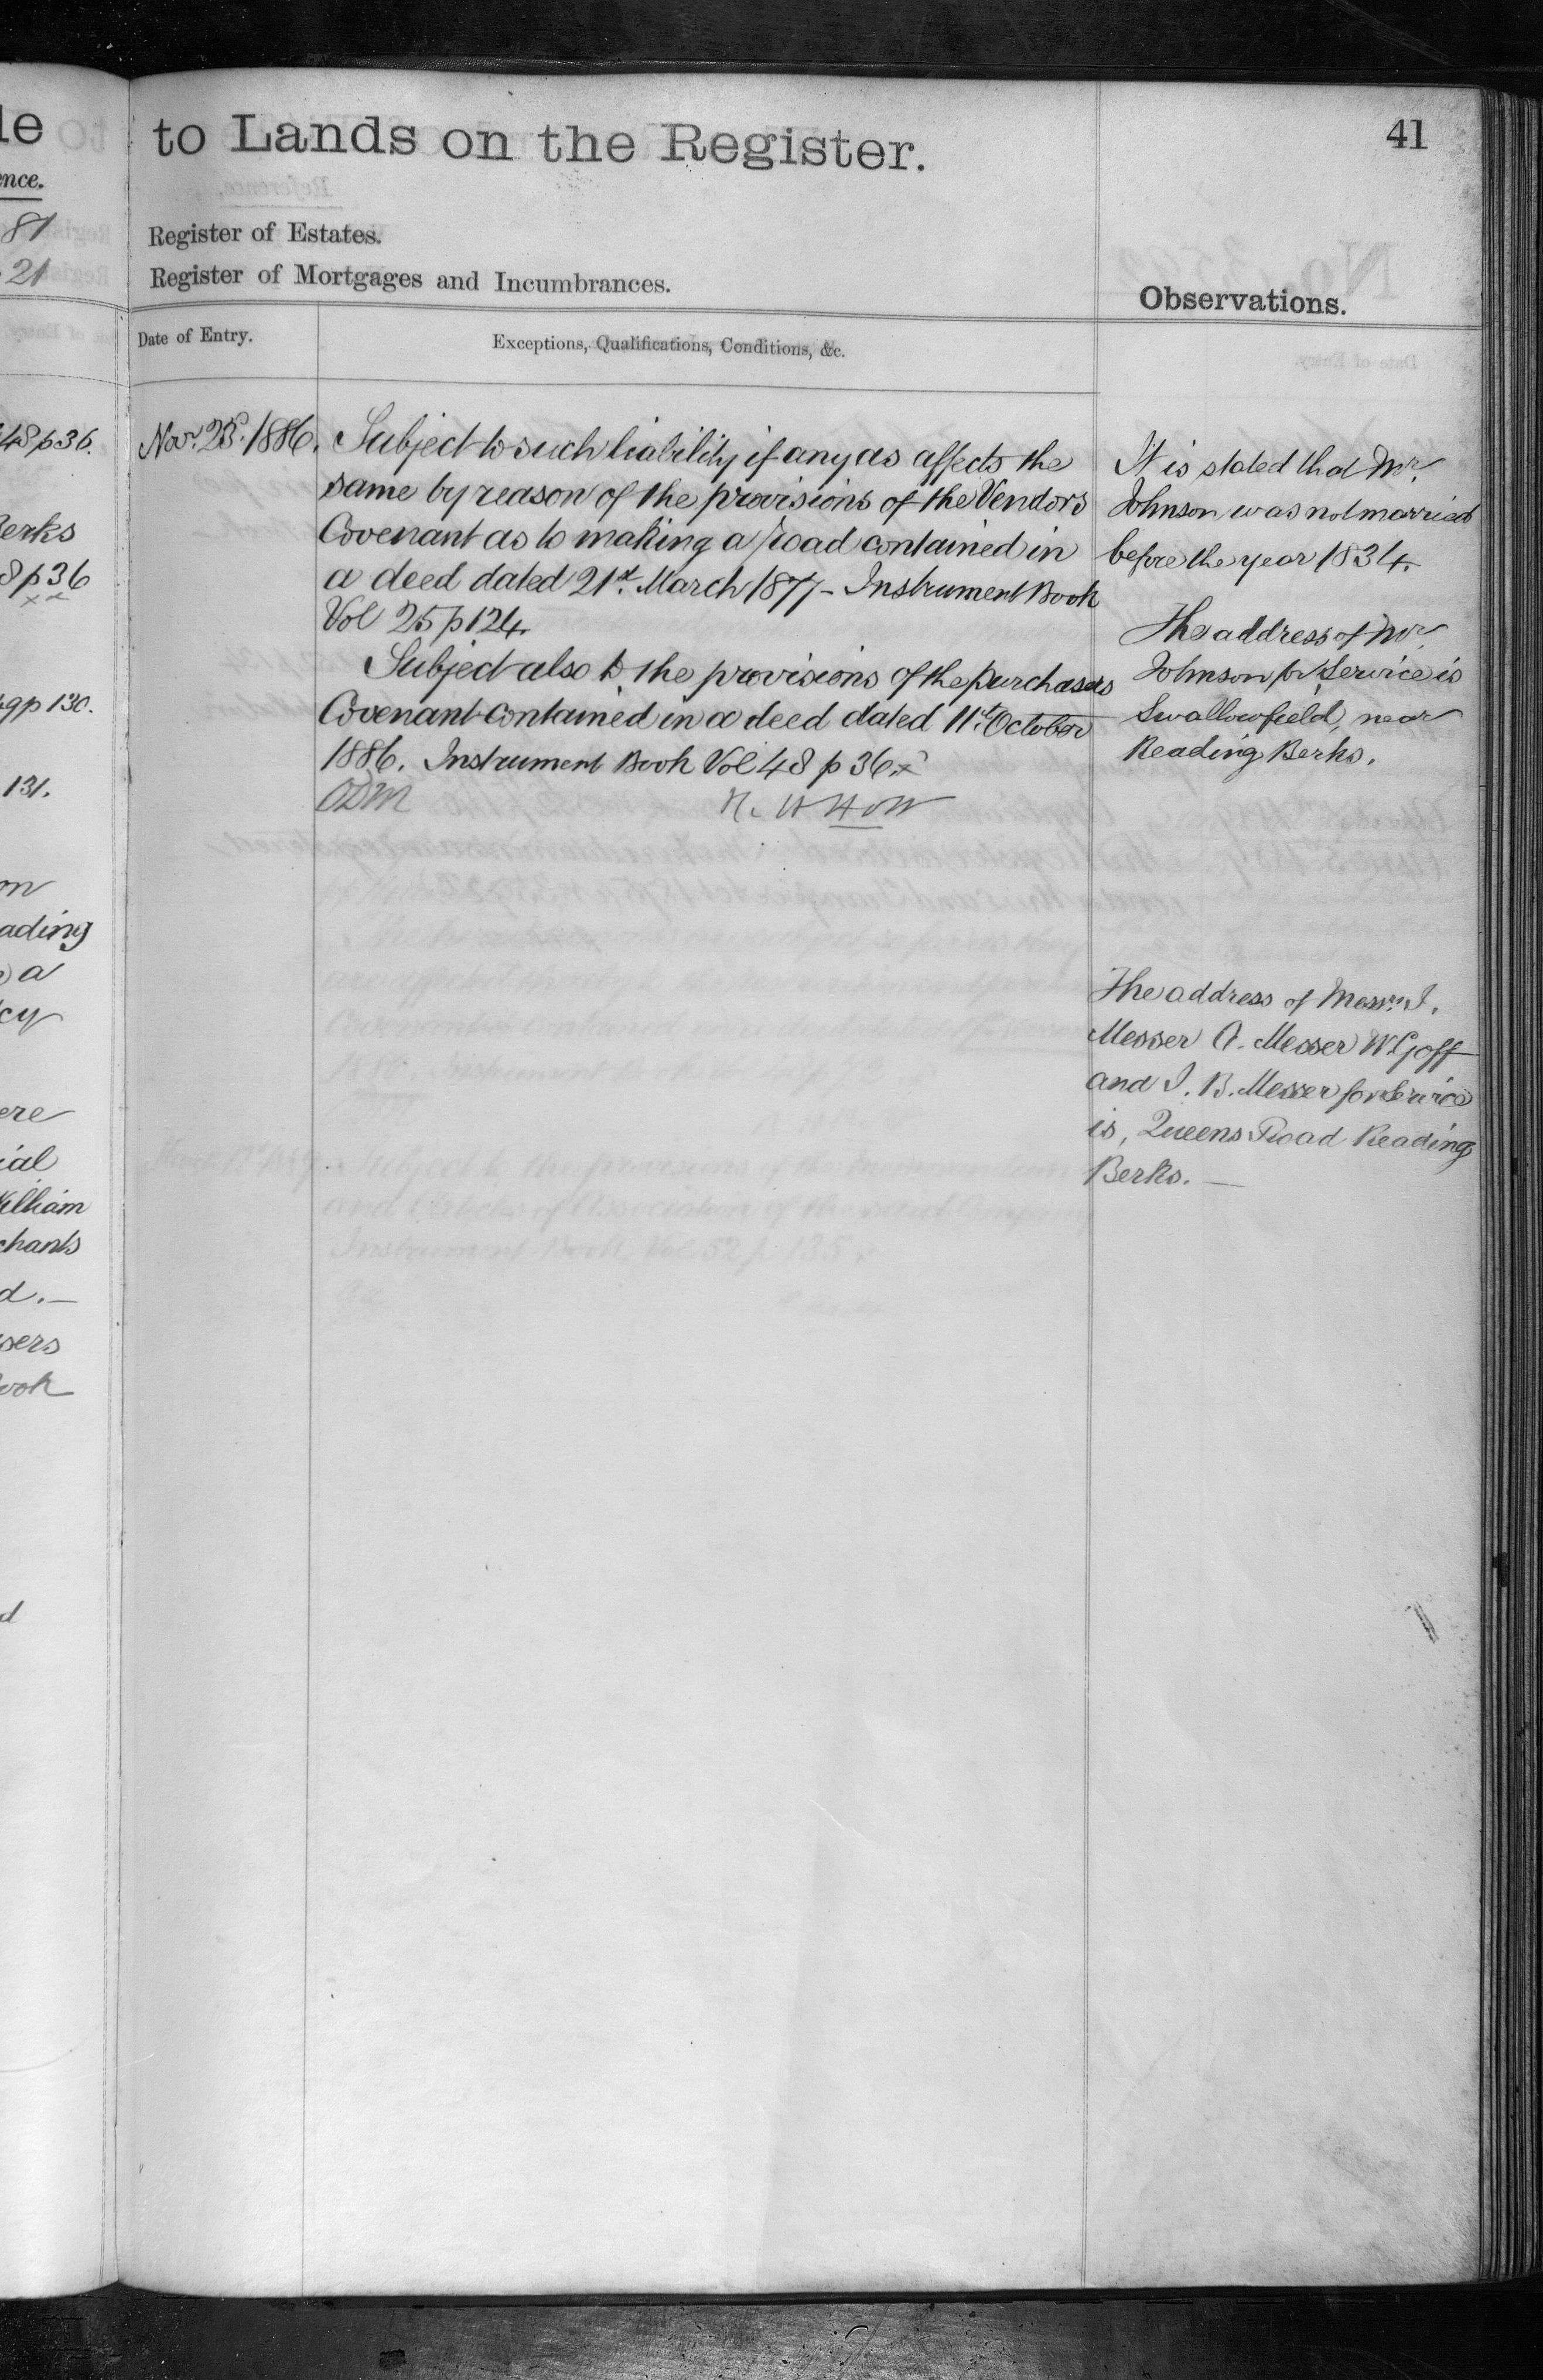 le
ence.
81
21
48 p 36.
Berks
8 p 36
x x
49 p 130.
131.
on
ading
a
cy
ere
ial
William
chants
d. —
sers
Book
d
to Lands on the Register.
41
Register of Estates.
Register of Mortgages and Incumbrances.
Observations.
Date of Entry.
Exceptions, Qualifications, Conditions, &c.
Nov. 1886.
Subject to such liability if any as affects the
same by reason of the provisions of the Vendors
Covenant as to making a road contained in
a deed dated 21st. March 1877 - Instrument Book
Vol 25 p 124.
Subject also to the provisions of the purchasers
Covenant contained in a deed dated 11th October
1886. Instrument Book Vol 48 p 36. x
It is stated that Mr.
Johnson was not married
before the year 1834.
The address of Mr.
Johnson for Service is
Swallowfield, near
Reading Berks.
The address of Messrs. I.
Messer A. Messer W Goff
and I. B. Messer for Service
is, Queens Road Reading
Berks. —